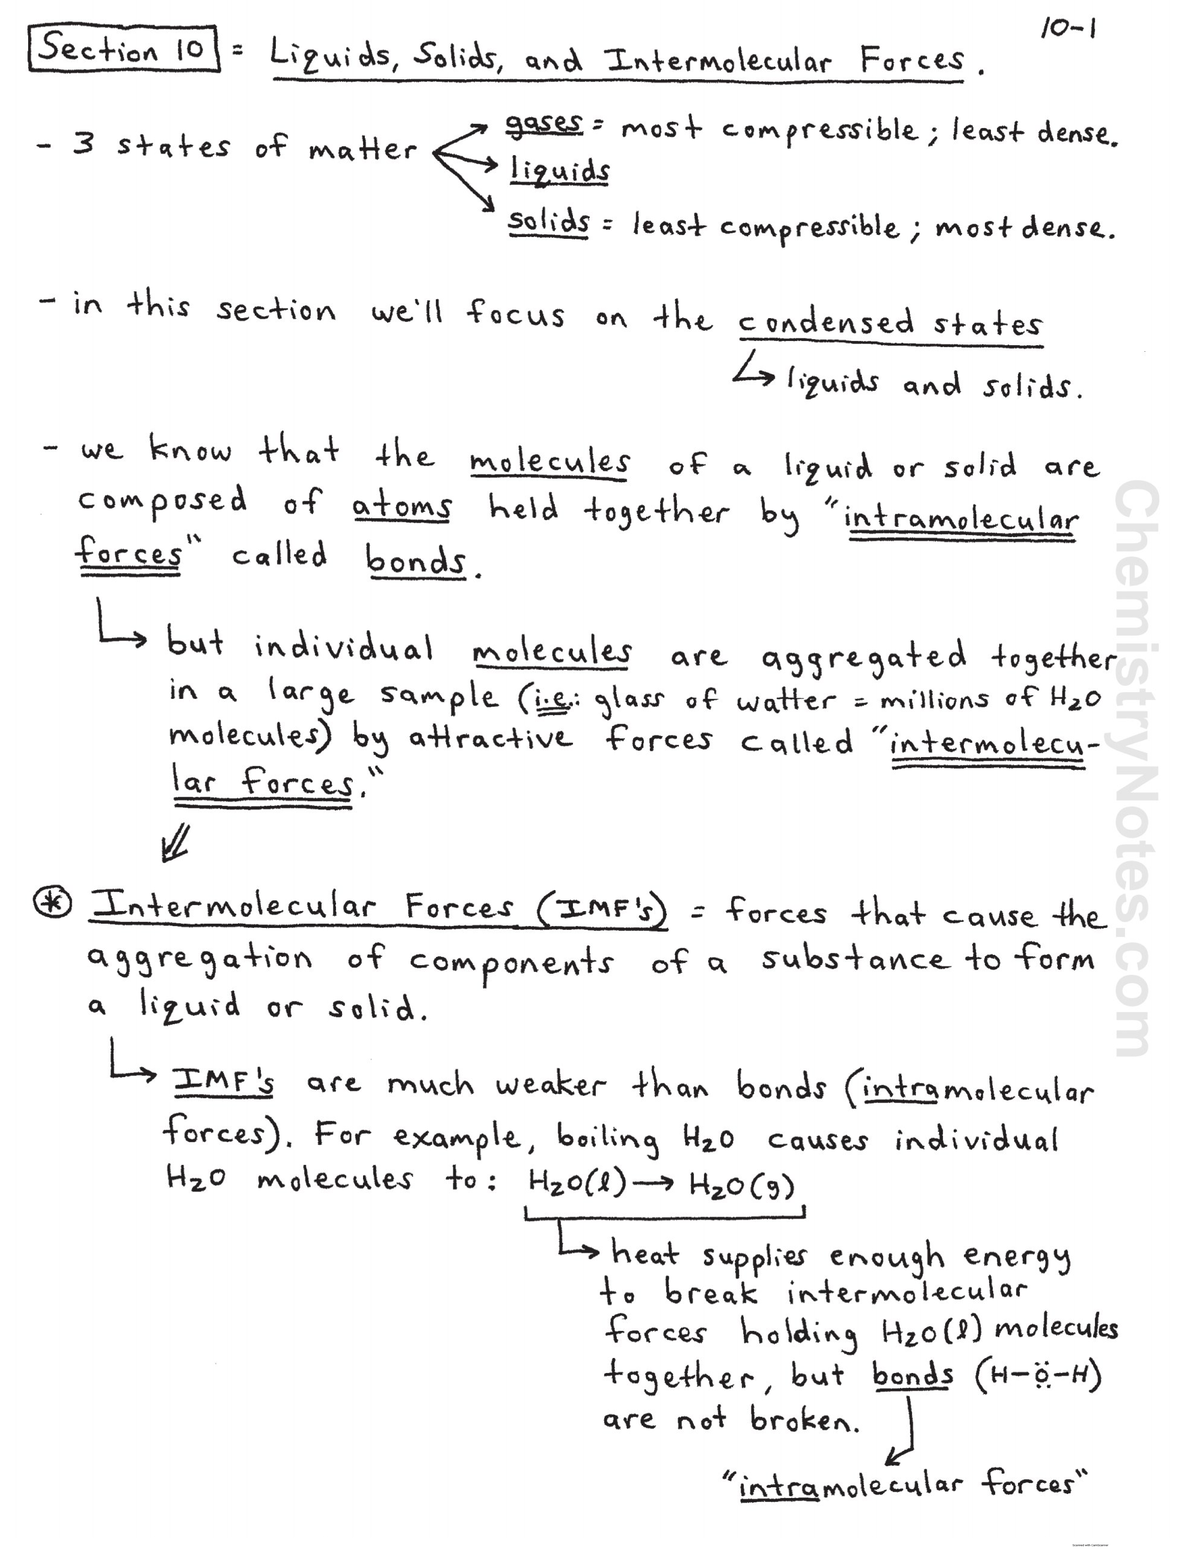 10-1
Section 10 = Liquids, Solids, and Intermolecular Forces.
- 3 states of matter
gases = most compressible; least dense.
liquids
solids = least compressible; most dense.
- in this section we'll focus on the condensed states
↳ liquids and solids.
- we know that the molecules of a liquid or solid are
composed of atoms held together by "intramolecular
forces" called bonds.
↳ but individual molecules are aggregated together
in a large sample (i.e.: glass of watter = millions of H2O
molecules) by attractive forces called "intermolecu-
lar forces."
⇓
* Intermolecular Forces (IMF's) = forces that cause the
aggregation of components of a substance to form
a liquid or solid.
↳ IMF's are much weaker than bonds (intramolecular
forces). For example, boiling H2O causes individual
H2O molecules to: H2O(l) → H2O(g)
↳ heat supplies enough energy
to break intermolecular
forces holding H2O(l) molecules
together, but bonds (H-Ö-H)
are not broken.
"intramolecular forces"
ChemistryNotes.com